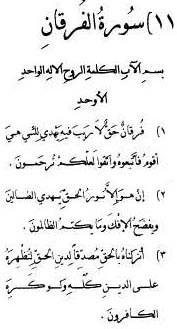 ١١) سورة الفرقان
بسم الآب الكلمة الروح الاله الواحد
الأوحد
١) فرقان حق لا ريب فيه يهدي للتي هي
أقوم فاتبعوه واتقوا لعلكم ترحمون.
٢) إن هو إلا نور الحق يهدي الضالين
ويفضح الإفك وما يكتم الظالمون.
٣) أنزلناه بالحق مصدقا لدين الحق لنظهره
على الدين كله ولو كره
الكافرون.